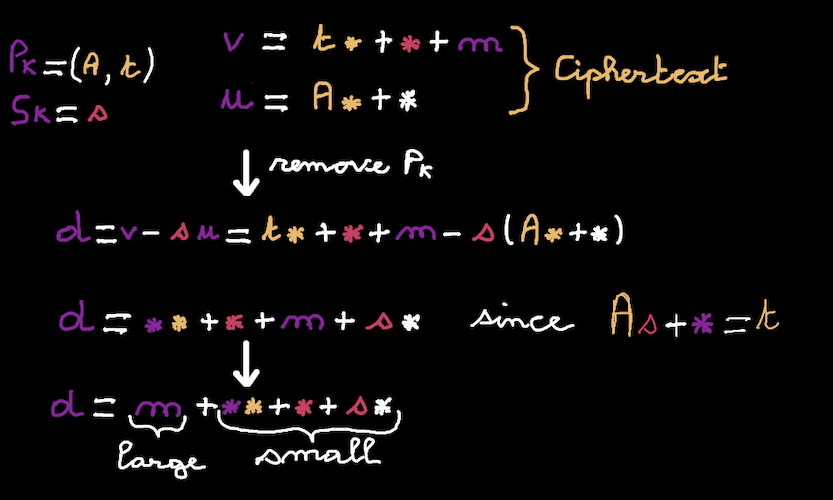 v = t * + * + m
Pk = (A, t)
u = A * + *
Sk = s
Ciphertext
remove Pk
d = v - s u = t * + * + m - s (A * + *)
d = * * + * + m + s * since A s + * = t
d = m + * * + * + s *
large small